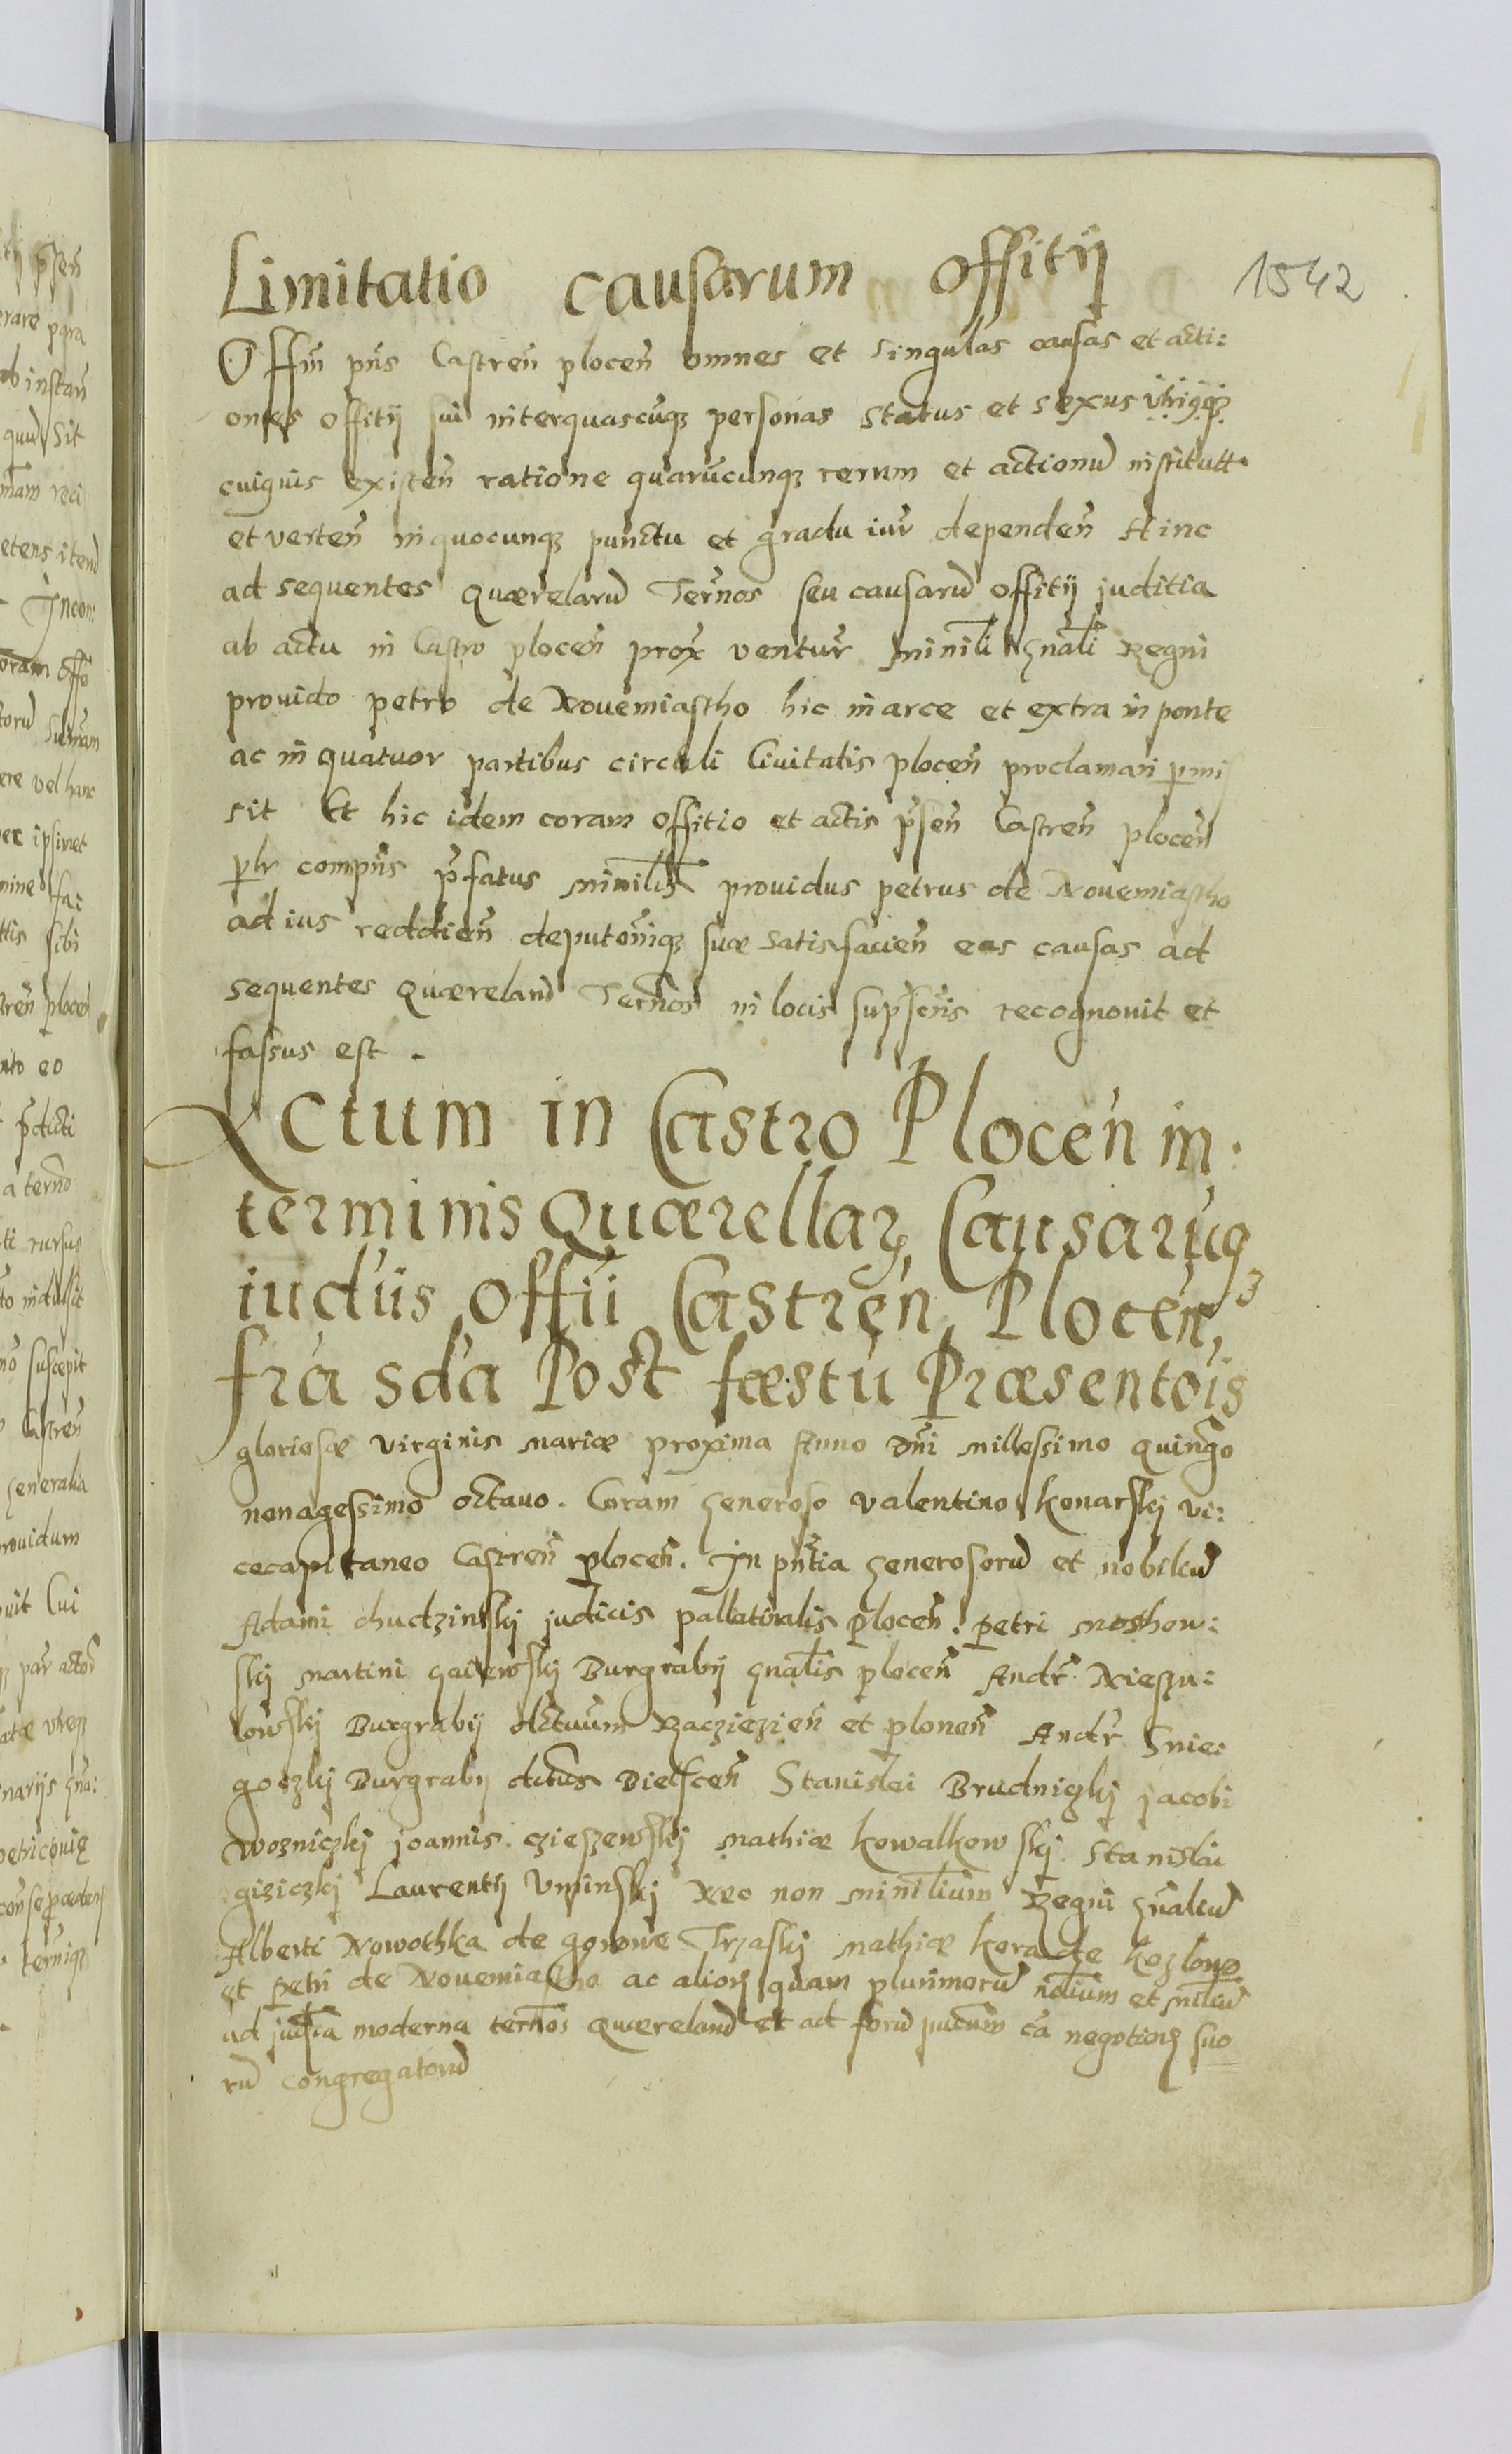 Limitatio causarum Offitij
1542
Offm pns Castren plocen omnes et singulas causas et acti:
ones offitij sui interquascuqz personas status et sexus utriqz
cuiquis existen ratione quarucunqz rerum et actionu institutt.
et verten in quocunqz punctu et gradu iur dependen Hinc
ad sequentes Quærelaru Ternos seu causaru offitij juditia
ab actu in Castro plocen prox ventur Minili Gnali Regni
prouido petro de Nouemiastho hic in arce et extra in ponte
ac in quatuor partibus circuli Ciuitatis plocen proclamari pmi
sit Et hic idem coram offitio et actis psen Castren plocen
plr compns pfatus Minilis prouidus petrus de Nouemiastho
ad ius reddien deputoniqz suæ satisfacien eas causas ad
sequentes Quæreland Ternos in locis supscris recognouit et
fassus est.
Actum in Castro Plocen in.
terminis Quærellarz Causaruqz
iudiis Offii Castren Plocen,
fra sda Post fæstu Præsentois
gloriosæ virginis Mariæ proxima Anno Dni Millessimo quingo
nonagessimo octauo. Coram Generoso Valentino Konarskij vi:
cecapitaneo Castren plocen. In pntia Generosoru et nobiliu
Adami Chudzinskij judicis pallatinalis plocen. petri Moshow:
skij Martini Gaiewskij Burgrabij Gnalis plocen Andr Nieszu:
lowskij Burgrabij dctuum Racziezien et plonen Andr Snie:
goczkij Burgrabij dctus Bielscen Stanislai Brudniczkij jacobi
Wozniczkij joannis Czieszewskij Mathiæ Kowalkowskij Stanislai
giziczkij Laurentij Uminskij Nec non Minilium Regni Gnaliu
Alberti Nowothka de gorowe Trzaskij Mathiæ Kera de Kozlowo
et petri de Nouemiastho ac aliorz quam plurimoru ndium et nliu
ad judia moderna ternos Quæreland et ad foru pucum ca negotiorz suo
ru congregatoru